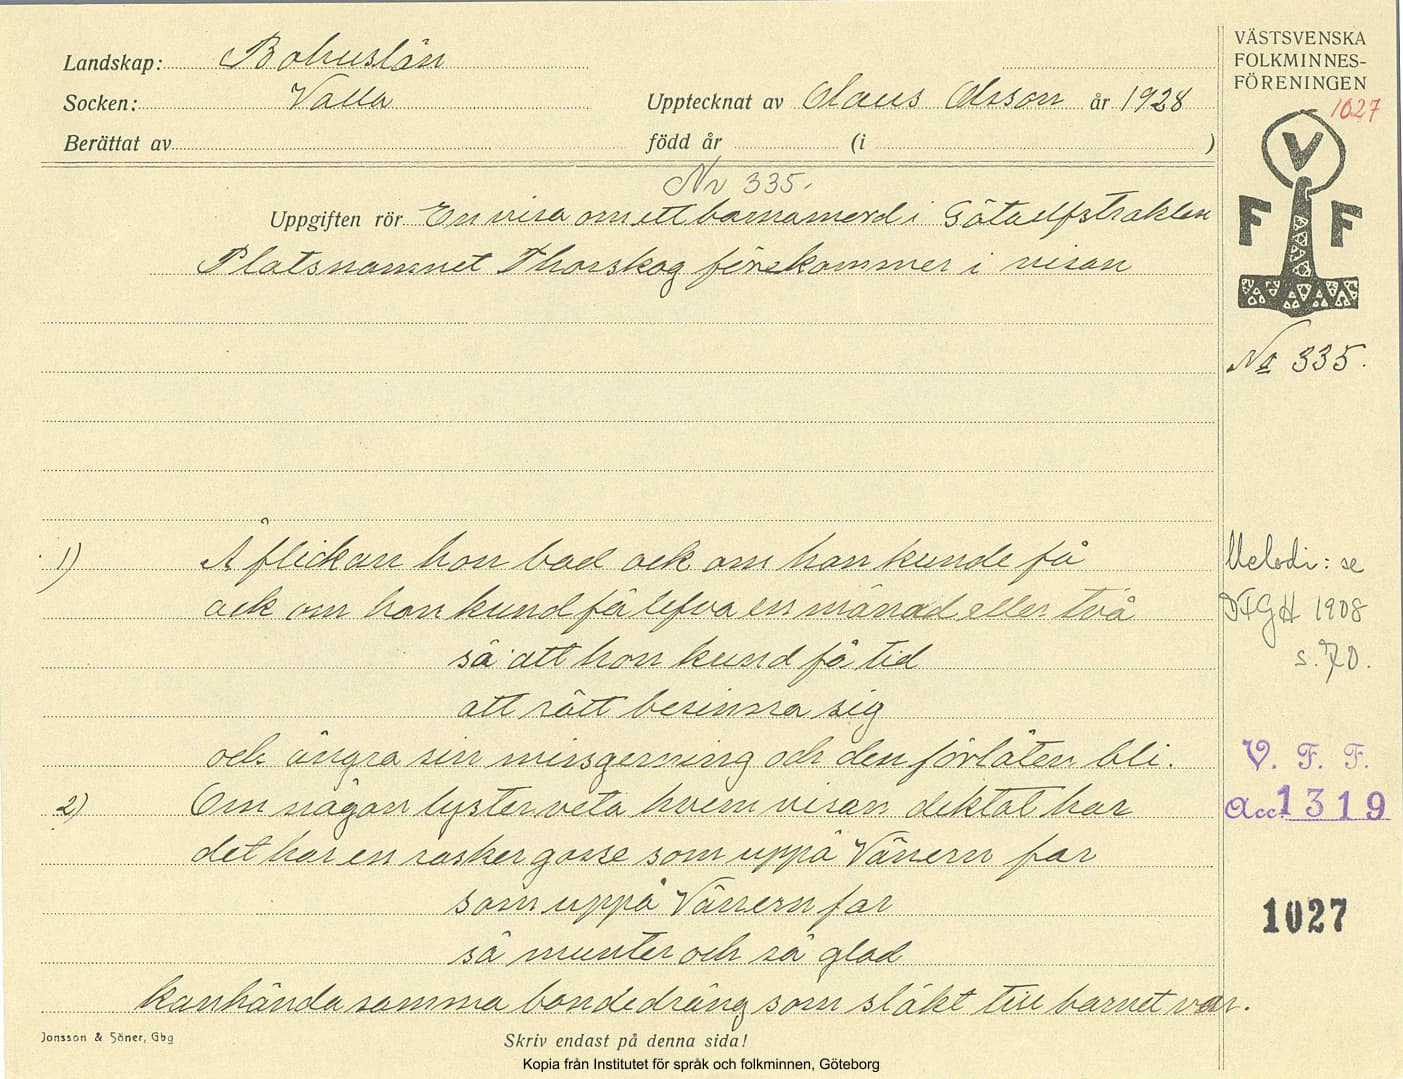 Landskap: Bohuslän
Socken: Valla
Upptecknat av Claus Olsson år 1928
Berättat av
född år (i )
VÄSTSVENSKA
FOLKMINNES-
FÖRENINGEN
1027
V
F F
Nr 335.
Uppgiften rör En visa om ett barnamord i Götaelfstrakten
Platsnamnet Thorskog förekommer i visan
No 335.
1) Å flickan hon bad ack om hon kunde få
ack om hon kund få lefva en månad eller två
så att hon kund få tid
att rätt besinna sig
och ångra sin missgerning och den förlåten bli.
Melodi: se
DFGH 1908
s. 70.
V. F. F.
Acc 1319
1027
2) Om någon lyster veta hvem visan diktat har
det har en rasker gosse som uppå Vänern far
som uppå Vänern far
så munter och så glad
kanhända samma bondedräng som släkt till barnet var.
Jonsson & Söner, Gbg
Skriv endast på denna sida!
Kopia från Institutet för språk och folkminnen, Göteborg